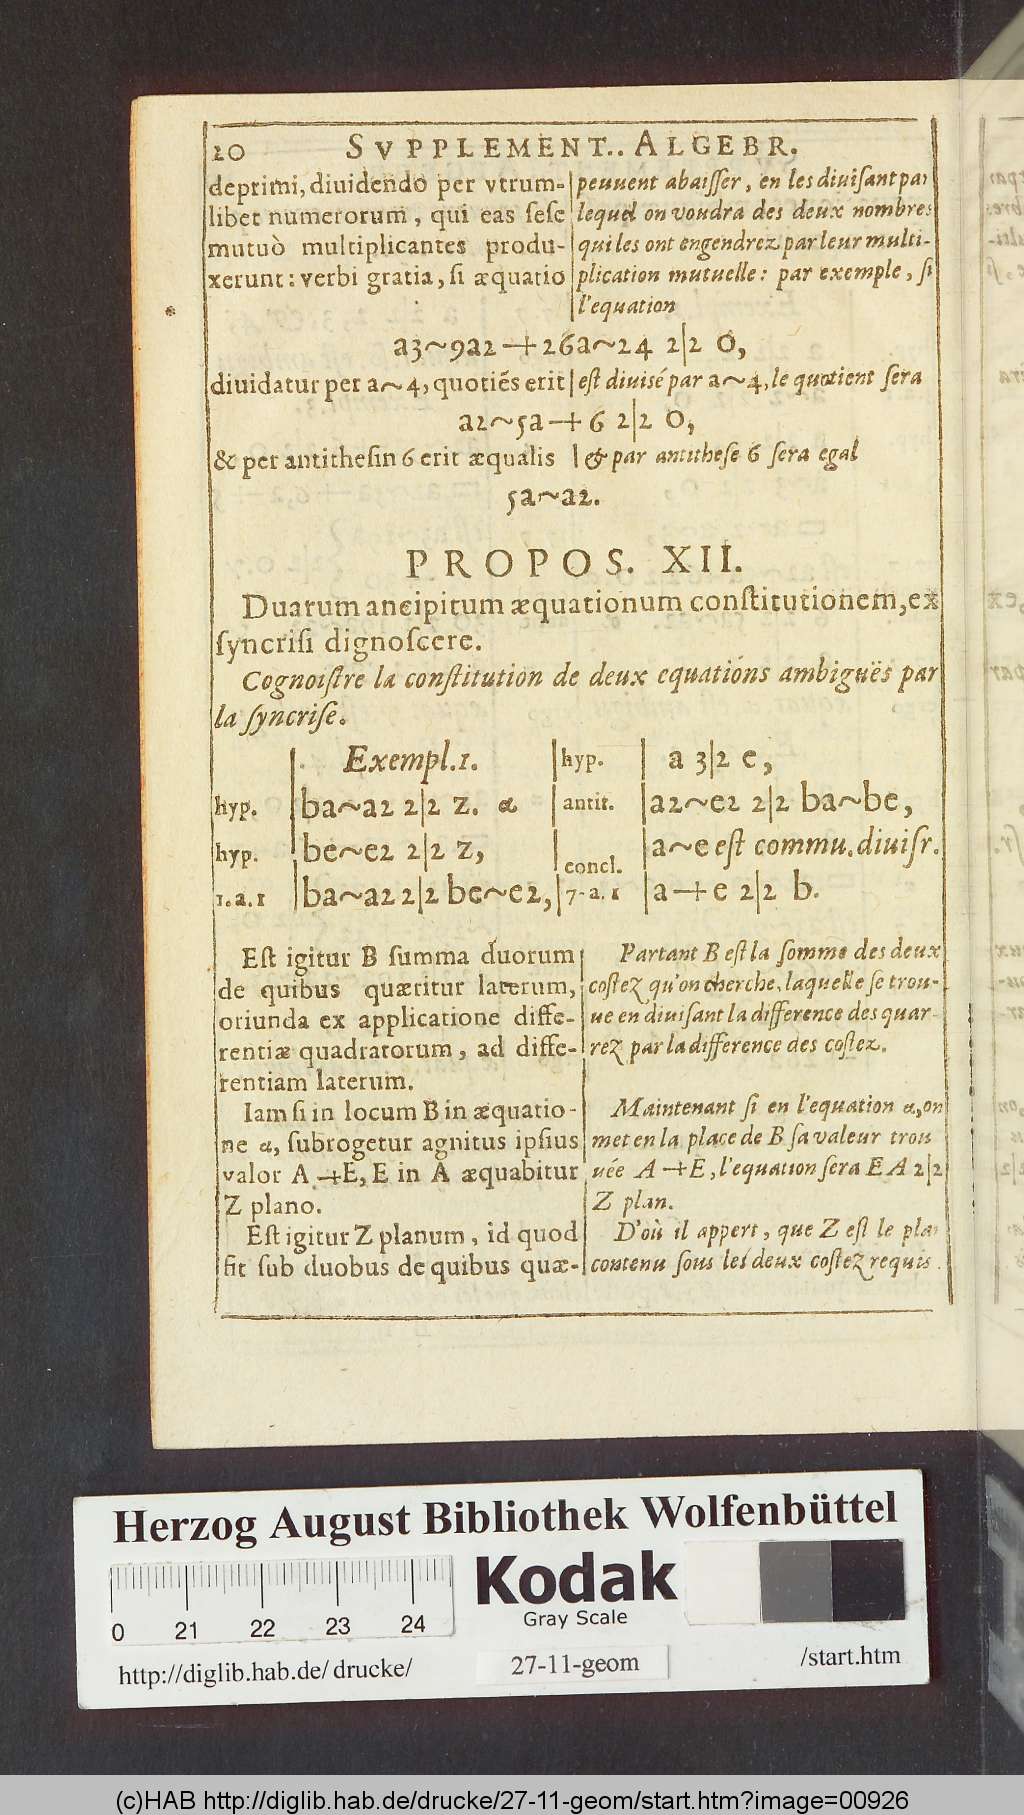 20 SVPPLEMENT.. ALGEBR.
deprimi, diuidendo per vtrum-
libet numerorum, qui eas sese
mutuò multiplicantes produ-
xerunt: verbi gratia, si æquatio
peuuent abaisser, en les diuisant par
lequel on voudra des deux nombres
qui les ont engendrez par leur multi-
plication mutuelle: par exemple, si
l'equation
a3~9a2-+26a~24 2|2 0,
diuidatur per a~4, quotiẽs erit | est divisé par a~4, le quotient sera
a2~5a-+6 2|2 0,
& per antithesin 6 erit æqualis | & par antithese 6 sera egal
5a~a2.
PROPOS. XII.
Duarum ancipitum æquationum constitutionem, ex
syncrisi dignoscere.
Cognoistre la constitution de deux equations ambiguës par
la syncrise.
Exempl.1.
hyp. | ba~a2 2|2 z. α
hyp. | be~e2 2|2 z,
1.a.1 | ba~a2 2|2 be~e2,
hyp. | a 3|2 e,
antit. | a2~e2 2|2 ba~be,
a~e est commu. diuisr.
concl.
7.a.1 | a-+e 2|2 b.
Est igitur B summa duorum
de quibus quæritur laterum,
oriunda ex applicatione diffe-
rentiæ quadratorum, ad diffe-
rentiam laterum.
Iam si in locum B in æquatio-
ne α, subrogetur agnitus ipsius
valor A -+E, E in A æquabitur
Z plano.
Est igitur Z planum, id quod
fit sub duobus de quibus quæ-
Partant B est la somme des deux
costez qu'on cherche, laquelle se trou-
ue en diuisant la difference des quar-
rez par la difference des costez.
Maintenant si en l'equation α, on
met en la place de B sa valeur trou
uée A -+E, l'equation sera E A 2|2
Z plan.
D'où il appert, que Z est le plan
contenu sous les deux costez requis.
Herzog August Bibliothek Wolfenbüttel
Kodak
Gray Scale
0 21 22 23 24
http://diglib.hab.de/ drucke/ 27-11-geom /start.htm
(c)HAB http://diglib.hab.de/drucke/27-11-geom/start.htm?image=00926